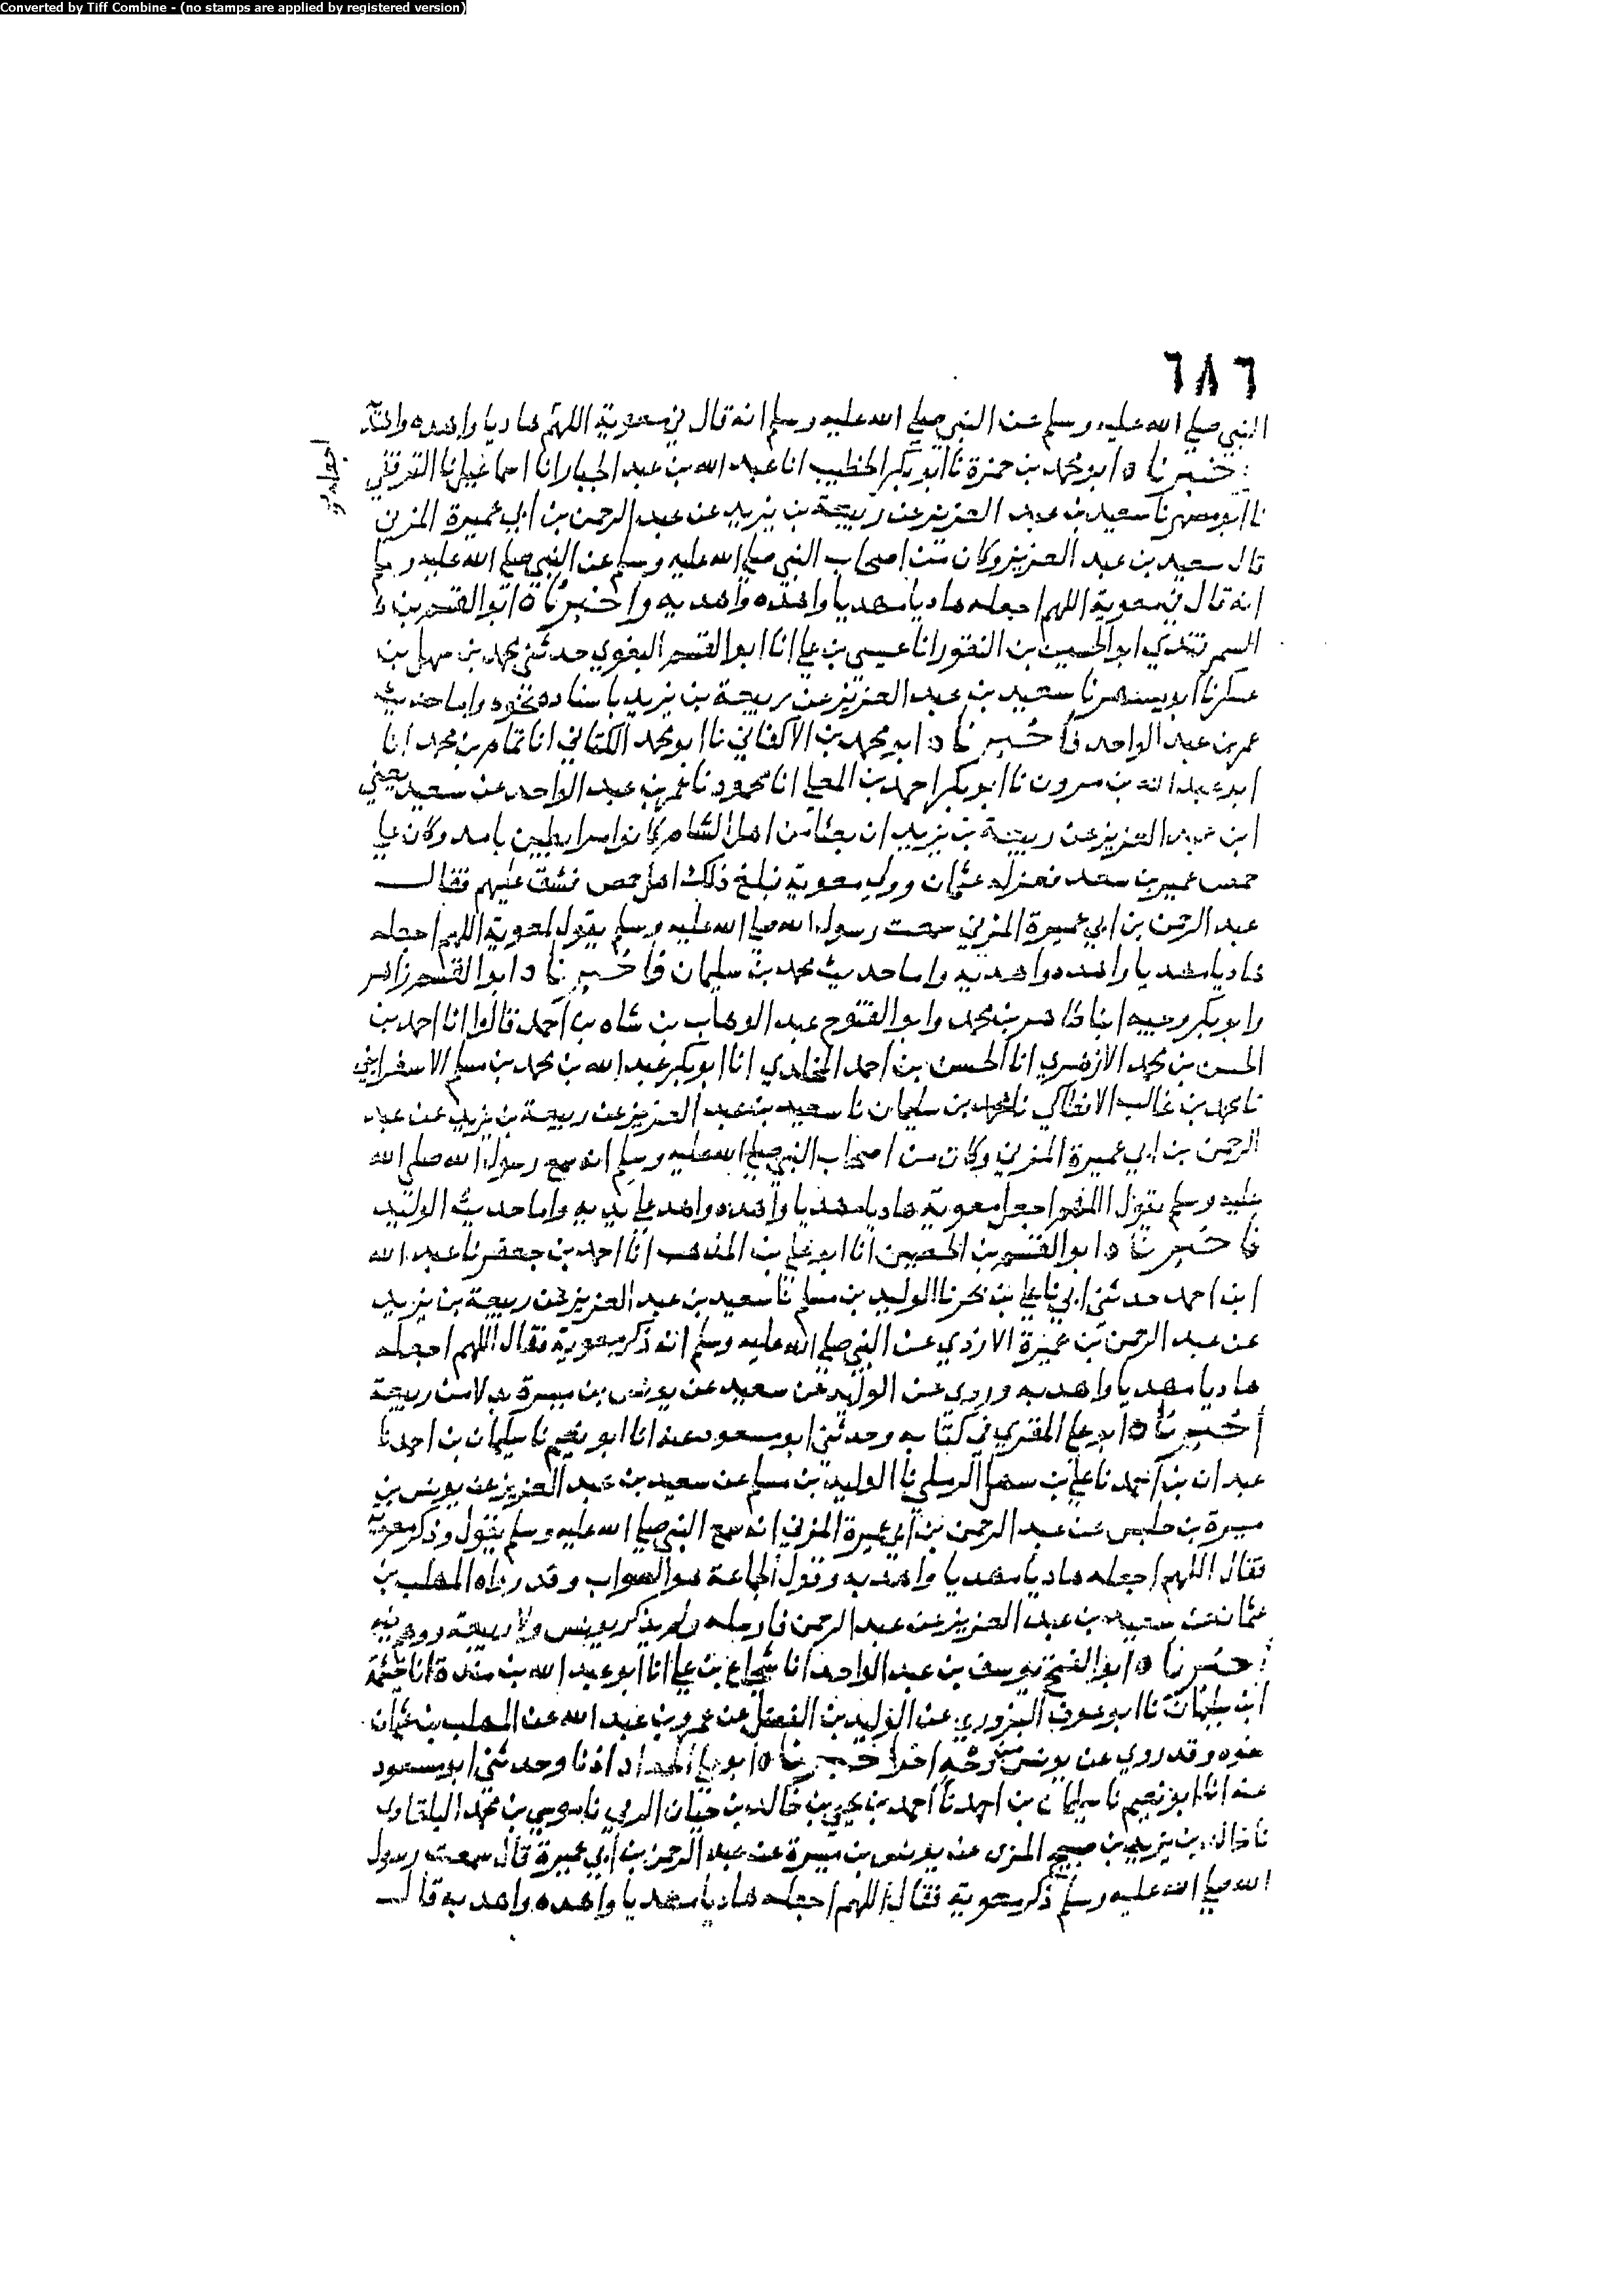 Converted by Tiff Combine - (no stamps are applied by registered version)
٦٨٦
النبي صلى الله عليه وسلم عن النبي صلى الله عليه وسلم انه قال في معوية اللهم هاديا واهده واهد
اجعله
خبرنا ه ابو محمد بن حمزة نا ابو بكر الخطيب انا عبد الله بن عبد الجبار انا اسماعيل نا الترقفي
نا ابو مسهر نا سعيد بن عبد العزيز عن ربيعة بن يزيد عن عبد الرحمن بن ابي عميرة المزني
قال سعيد بن عبد العزيز وكان من اصحاب النبي صلى الله عليه وسلم عن النبي صلى الله عليه وسلم
انه قال في معوية اللهم اجعله هاديا مهديا واهده واهد به واخبرنا ه ابو القسم بن
السمرقندي ابو الحسين بن النقور انا عيسى بن علي انا ابو القسم البغوي حدثني محمد بن سهل بن
عسكر نا ابو مسهر نا سعيد بن عبد العزيز عن ربيعة بن يزيد باسناده نحوه واما حديث
عمر بن عبد الواحد فاخبرنا ه ابو محمد بن الاكفاني نا ابو محمد الكتاني انا تمام بن محمد انا
ابو عبد الله بن مرون نا ابو بكر احمد بن المعلى انا محمود نا عمر بن عبد الواحد عن سعيد يعني
ابن عبد العزيز عن ربيعة بن يزيد ان بعثا من اهل الشام كانوا مرابطين بامد وكان على
حمص عمير بن سعد فعزله عثمان وولى معوية فبلغ ذلك اهل حمص فشق عليهم فقال
عبد الرحمن بن ابي عميرة المزني سمعت رسول الله صلى الله عليه وسلم يقول لمعوية اللهم اجعله
هاديا مهديا واهده واهد به واما حديث محمد بن سليمان فاخبرنا ه ابو القسم زاهر
وابو بكر وجيه ابنا طاهر بن محمد وابو الفتوح عبد الوهاب بن شاه بن احمد قالوا انا احمد بن
الحسن بن محمد الازهري انا الحسن بن احمد المخلدي انا ابو بكر عبد الله بن محمد بن مسلم الاسفرايني
نا محمد بن غالب الانطاكي نا محمد بن سليمان نا سعيد بن عبد العزيز عن ربيعة بن يزيد عن عبد
الرحمن بن ابي عميرة المزني وكان من اصحاب النبي صلى الله عليه وسلم انه سمع رسول الله صلى الله
عليه وسلم يقول اللهم اجعل معوية هاديا مهديا واهده واهد على يديه واما حديث الوليد
فاخبرنا ه ابو القسم بن الحصين انا ابو علي بن المذهب انا احمد بن جعفر نا عبد الله
ابن احمد حدثني ابي نا علي بن بحر نا الوليد بن مسلم نا سعيد بن عبد العزيز عن ربيعة بن يزيد
عن عبد الرحمن بن عميرة الازدي عن النبي صلى الله عليه وسلم انه ذكر معوية فقال اللهم اجعله
هاديا مهديا واهد به وروي عن الوليد عن سعيد عن يونس بن ميسرة بدلا من ربيعة
اخبرنا ه ابو علي المقري في كتابه وحدثني ابو مسعود عنه انا ابو نعيم نا سليمان بن احمد نا
عبدان بن احمد نا علي بن سهل الرملي نا الوليد بن مسلم عن سعيد بن عبد العزيز عن يونس بن
ميسرة بن حلبس عن عبد الرحمن بن ابي عميرة المزني انه سمع النبي صلى الله عليه وسلم يقول وذكر معوية
فقال اللهم اجعله هاديا مهديا واهد به وقول الجماعة هو الصواب وقد رواه المهلب بن
عثمان عن سعيد بن عبد العزيز عن عبد الرحمن فارسله ولم يذكر يونس ولا ربيعة
اخبرنا ه ابو الفتح يوسف بن عبد الواحد انا شجاع بن علي انا ابو عبد الله بن مندة انا خيثمة
ابن سليمان نا ابو عوف البزوري عن الوليد بن الفضل عن عمرو بن عبد الله عن المهلب بن عثمان
نحوه وقد روي عن يونس من وجه اخر اخبرنا ه ابو علي الحداد اذنا وحدثني ابو مسعود
عنه انا ابو نعيم نا سليمان بن احمد نا احمد بن يحيى بن خالد بن حيان الرقي نا موسى بن محمد البلقاوي
نا خالد بن يزيد بن صبيح المري عن يونس بن ميسرة عن عبد الرحمن بن ابي عميرة قال سمعت رسول
الله صلى الله عليه وسلم ذكر معوية فقال اللهم اجعله هاديا مهديا واهده واهد به قال